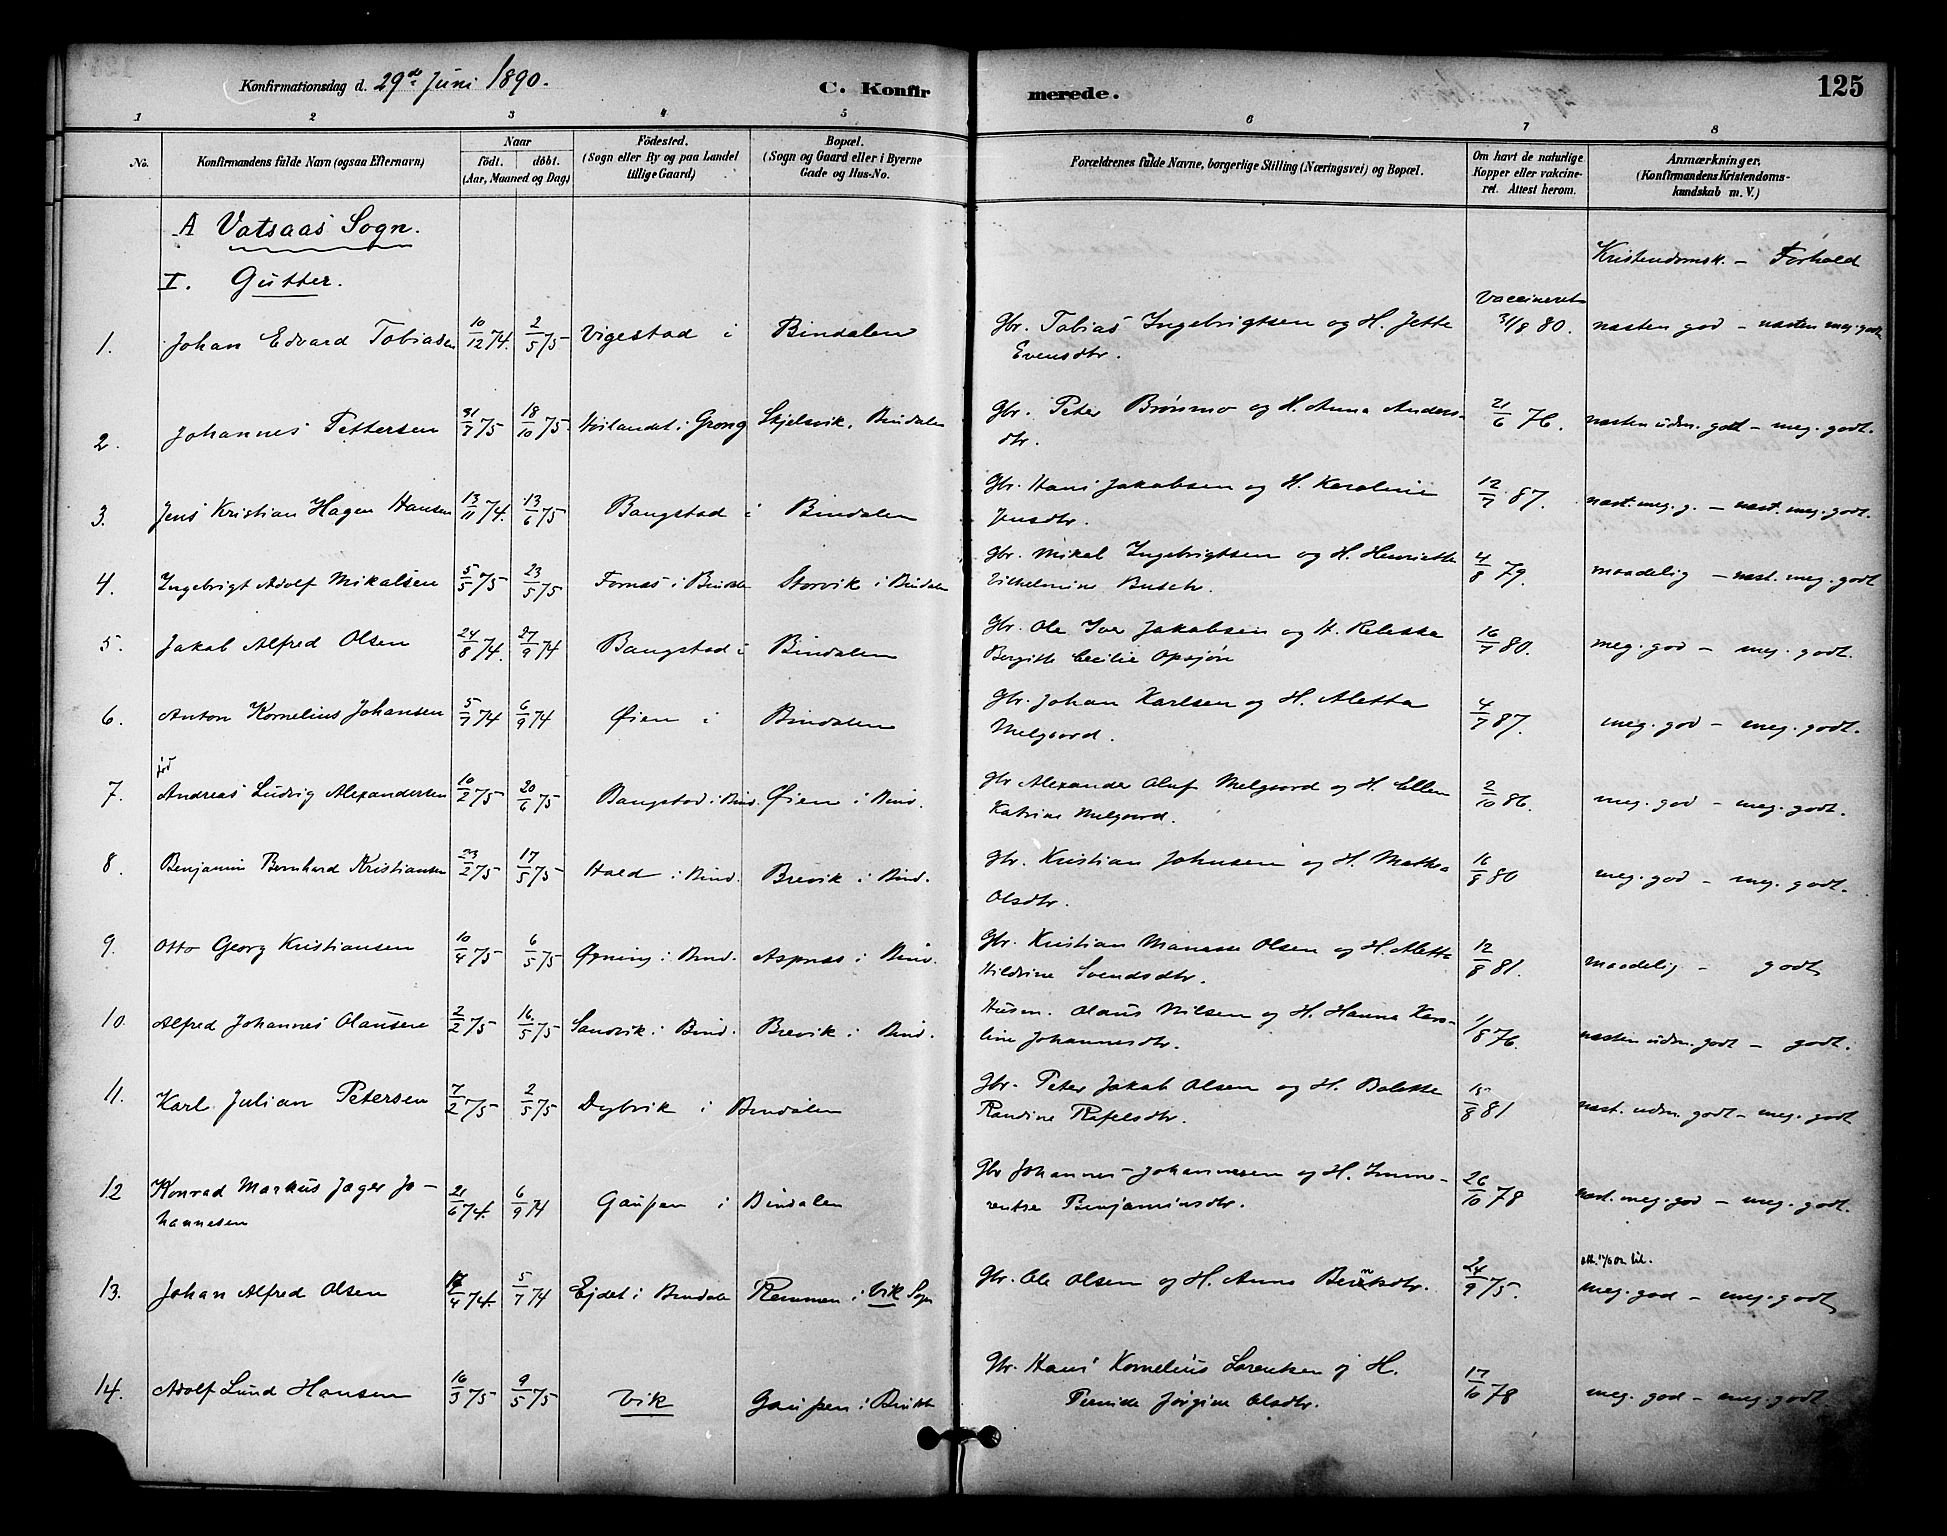 Konfirmationsdag d. 29de Juni 1890.
C. Konfirmerede.
125
1 2 3 4 5 6 7 8
No.
Konfirmandens fulde Navn (ogsaa Efternavn)
Naar
födt. döbt.
(Aar, Maaned og Dag)
Födested.
(Sogn eller By og paa Landet
tillige Gaard)
Bopæl.
(Sogn og Gaard eller i Byerne
Gade og Hus-No.
Forældrenes fulde Navne, borgerlige Stilling (Næringsvei) og Bopæl.
Om havt de naturlige
Kopper eller vakcine-
ret. Attest herom.
Anmærkninger.
(Konfirmandens Kristendoms-
kundskab m. V.)
A Vatsaas Sogn.
I. Gutter.
Kristendomsk. – Forhold
Vaccineret
1. Johan Edvard Tobiasen 10/12 74. 2/5 75 Vigestad i Bindalen Gbr. Tobias Ingebrigtsen og H. Jette 31/8 80. næsten god – næsten meg. godt
Evensdtr.
2. Johannes Pettersen 31/7 75 18/10 75. Høilandet i Grong Skjelsvik, Bindalen Gbr. Peter Brønmo og H. Anna Anders- 21/6 76. næsten udm. godt – meg. godt.
dtr.
3. Jens Kristian Hagen Hansen 13/11 74. 13/6 75 Bangstad i Bindalen Gbr. Hans Jakobsen og H. Karoline 12/7 87. næst. meg. g. – næst. meg. godt.
Jensdtr.
4. Ingebrigt Adolf Mikalsen 5/5 75 23/5 75 Fornæs i Bindalen Storvik i Bindalen Gbr. Mikal Ingebrigtsen og H. Henriette 4/8 79. maadelig – næst. meg. godt
Vilhelmine Busch.
5. Jakob Alfred Olsen 24/8 74. 27/9 74 Bangstad i Bindalen Gbr. Ole Iver Jakobsen og H. 16/7 80. meg. god – meg. godt.
Bergitte Cecilie Opsjøn
6. Anton Kornelius Johansen 5/7 74 6/9 74 Øien i Bindalen Gbr. Johan Karlsen og H. Aletta 4/7 87. meg. god – meg. godt.
Melgaard.
død
7. Andreas Ludvig Alexandersen 10/2 75 20/6 75 Bangstad i Bind. Øien i Bind. Gbr Alexander Oluf Melgaard og H. Ellen 2/10 86. meg. god – meg. godt.
Katrine Melgaard.
8. Benjamin Bernhard Kristiansen 23/2 75 17/5 75 Hald i Bind. Brevik i Bind. Gbr. Kristian Johnsen og H. Mathea 16/8 80 meg. god – meg. godt.
Olsdtr.
9. Otto Georg Kristiansen 10/4 75 6/5 75 Øyning i Bind. Aspnæs i Bind. Gbr. Kristian Manasse Olsen og H. Aletta 12/8 81. maadelig – godt
Hildrine Svendsdtr.
10. Alfred Johannes Olausen 2/2 75 16/5 75 Sandvik i Bind. Brevik i Bind. Husm. Olaus Nilsen og H. Hanna Karo- 1/8 76. næsten udm. godt – godt.
line Johannesdtr.
11. Karl Julian Petersen 7/2 75 2/5 75 Dybvik i Bindalen Gbr. Peter Jakob Olsen og H. Bolette 15/8 81 næst. udm. godt – meg. godt
Randine Rafelsdtr.
12 Konrad Markus Jager Jo- 21/6 74. 6/9 74 Gaupen i Bindalen Gbr Johannes Johannesen og H. Imme- 26/10 78 næst. meg. god – meg. godt.
hannesen
rentse Benjaminsdtr.
13. Johan Alfred Olsen 4 74. 5/7 74 Ejdet i Bindalen Remmen i Vik Sogn Gbr. Ole Olsen og H. Anna 24/9 75. meg. god – meg. godt
14. Adolf Lund Hansen 16/3 75 9/5 75 Vik Gaupen i Gbr. Hans Kornelius Lorentsen og H. 17/10 78 meg. god – meg. godt.
Jørgine Olsdtr.